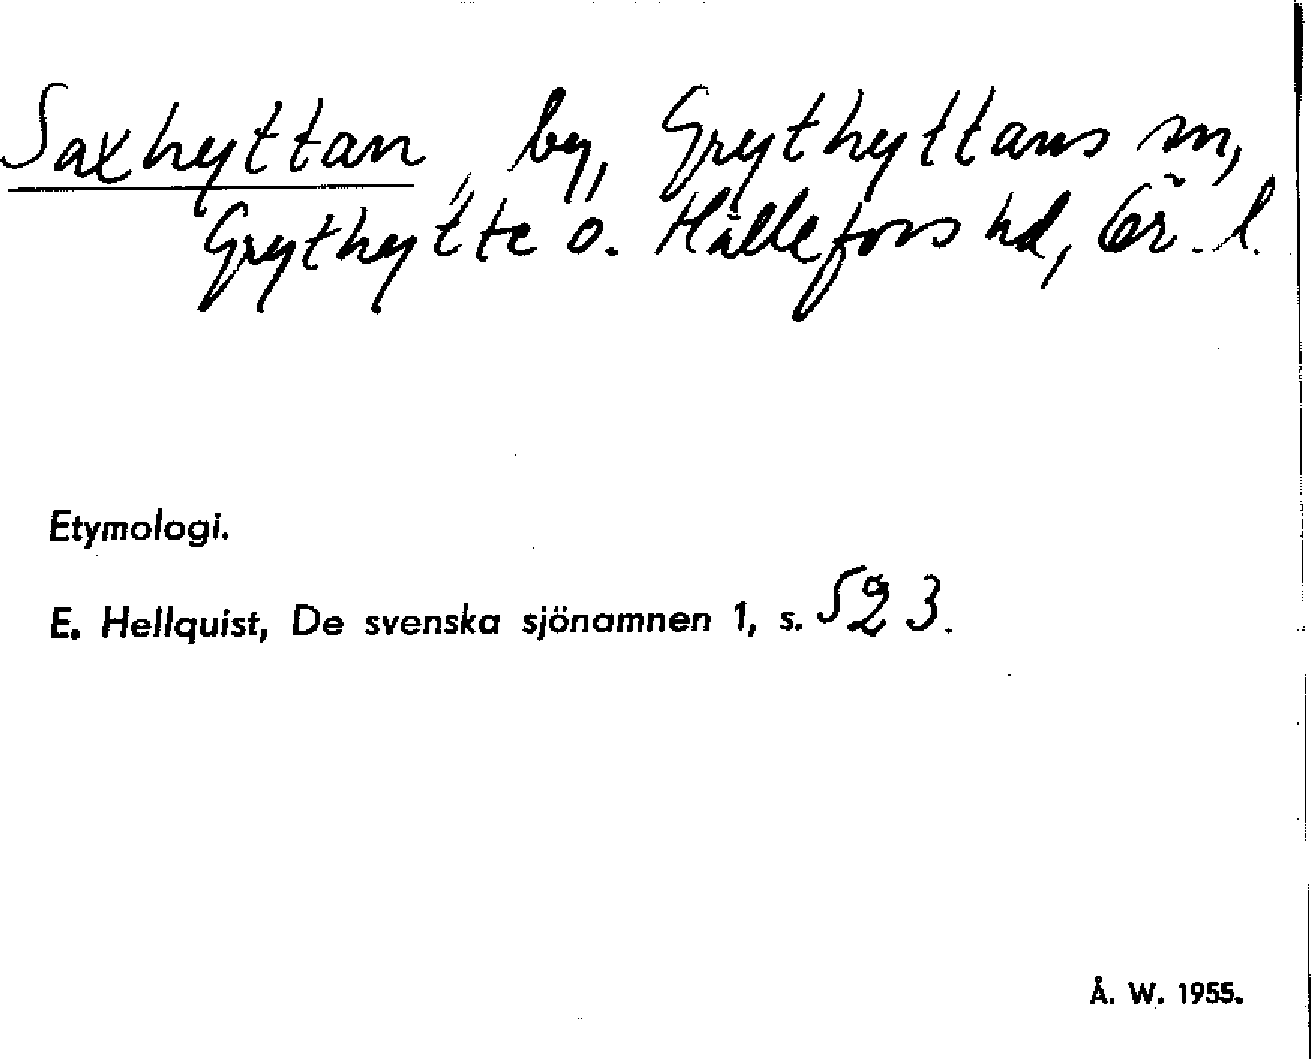 Saxhyttan, by, Grythyttans sn,
Grythytte o. Hällefors hd, Ör. l.
Etymologi.
E. Hellquist, De svenska sjönamnen 1, s. 523.
Å. W. 1955.